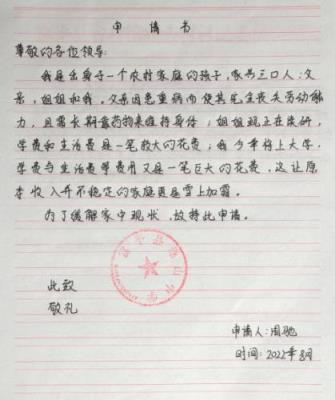 申请书
尊敬的各位领导:
我是出身于一个农村家庭的孩子,家有三口人:父
亲,姐姐和我。父亲因患重病而使其完全丧失劳动能
力,且需长期靠药物来维持身体;姐姐现正在读研,
学费和生活费是一笔较大的花费;我今年将上大学,
学费与生活费等费用又是一笔巨大的花费,这让原
本收入并不稳定的家庭更是雪上加霜。
为了缓解家中现状,故特此申请。
此致
敬礼
申请人:周驰
时间:2022年8月